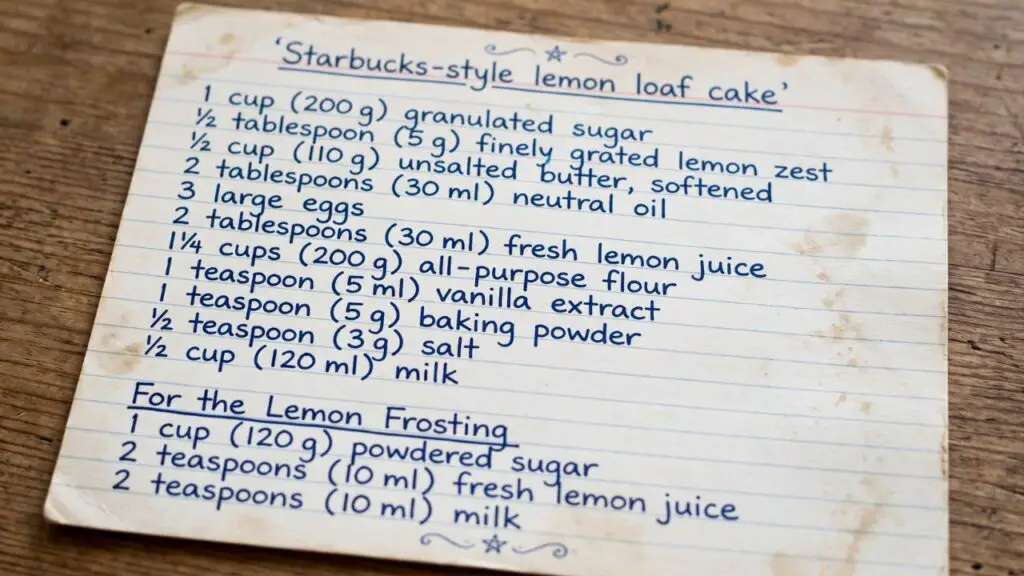 'Starbucks-style lemon loaf cake'
1 cup (200 g) granulated sugar
½ tablespoon (5 g) finely grated lemon zest
½ cup (110 g) unsalted butter, softened
2 tablespoons (30 ml) neutral oil
3 large eggs
2 tablespoons (30 ml) fresh lemon juice
1¼ cups (200 g) all-purpose flour
1 teaspoon (5 ml) vanilla extract
1 teaspoon (5 g) baking powder
½ teaspoon (3 g) salt
½ cup (120 ml) milk
For the Lemon Frosting
1 cup (120 g) powdered sugar
2 teaspoons (10 ml) fresh lemon juice
2 teaspoons (10 ml) milk